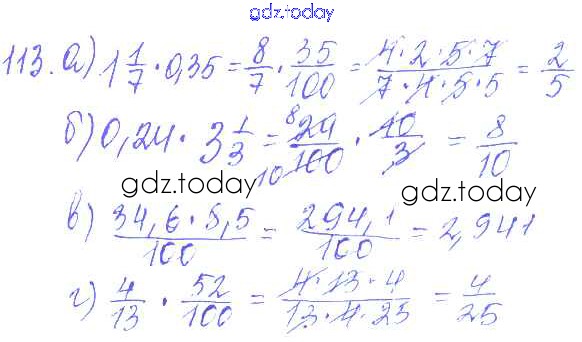 gdz.today
113. а) 1 1/7 · 0,35 = 8/7 · 35/100 = 4·2·5·7/7·4·5·5 = 2/5
б) 0,24 · 3 1/3 = 8 24/100 10 · 10/3 = 8/10
gdz.today
gdz.today
в) 34,6 · 8,5/100 = 294,1/100 = 2,941
г) 4/13 · 52/100 = 4·13·4/13·4·25 = 4/25